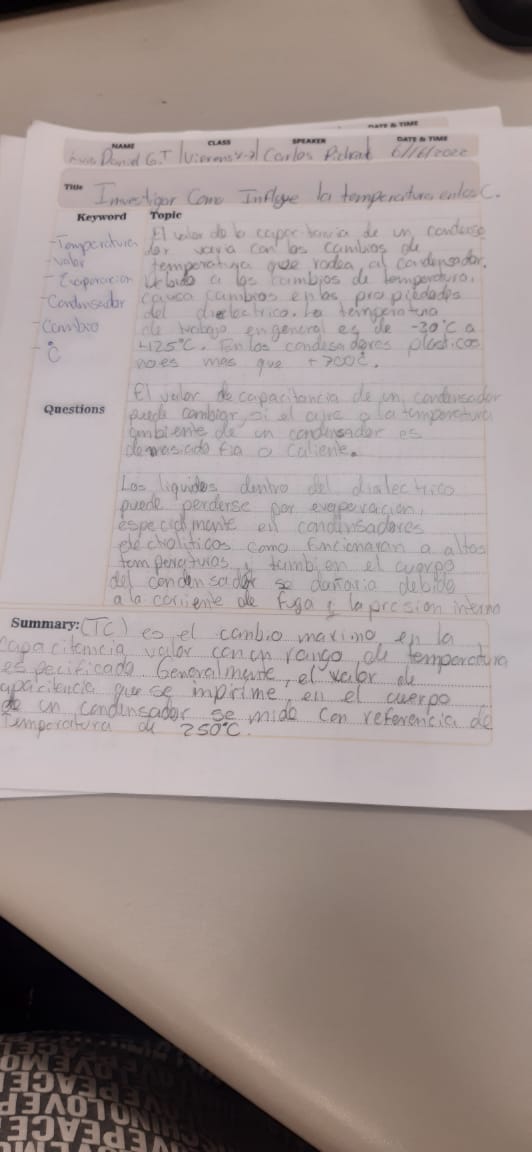 DATE & TIME
NAME CLASS SPEAKER DATE & TIME
Daniel G.T Carlos 6/16/2022
Title Investigar Como Influye la temperatura en los C.
Keyword Topic
-Temperatura
-valor
- Evaporacion
-Condensador
-Cambio
- °C
El valor de la capacitancia de un condensa
dor varia con los cambios de
temperatura que rodea al condensador.
Debido a los cambios de temperatura,
causa cambios en las propiedades
del dielectrico. La temperatura
de trabajo en general es de -30°C a
+125°C. En los condesadores plasticos
no es mas que +700°C.
Questions
El valor de capacitancia de un condensador
puede cambiar, si el aire o la temperatura
ambiente de un condensador es
demasiado fria o caliente.
Los liquidos dentro del dialectrico
puede perderse por evaporacion,
especialmente en condensadores
electroliticos como funcionaran a altas
temperaturas y tambien el cuerpo
del condensador se dañaria debido
a la corriente de fuga y la presion interna
Summary: (TC) es el cambio maximo, en la
capacitencia valor con un rango de temperatura
especificada Generalmente, el valor de
apacitencia que se imprime en el cuerpo
de un condensador se mide con referencia de
Temperatura de 250°C.